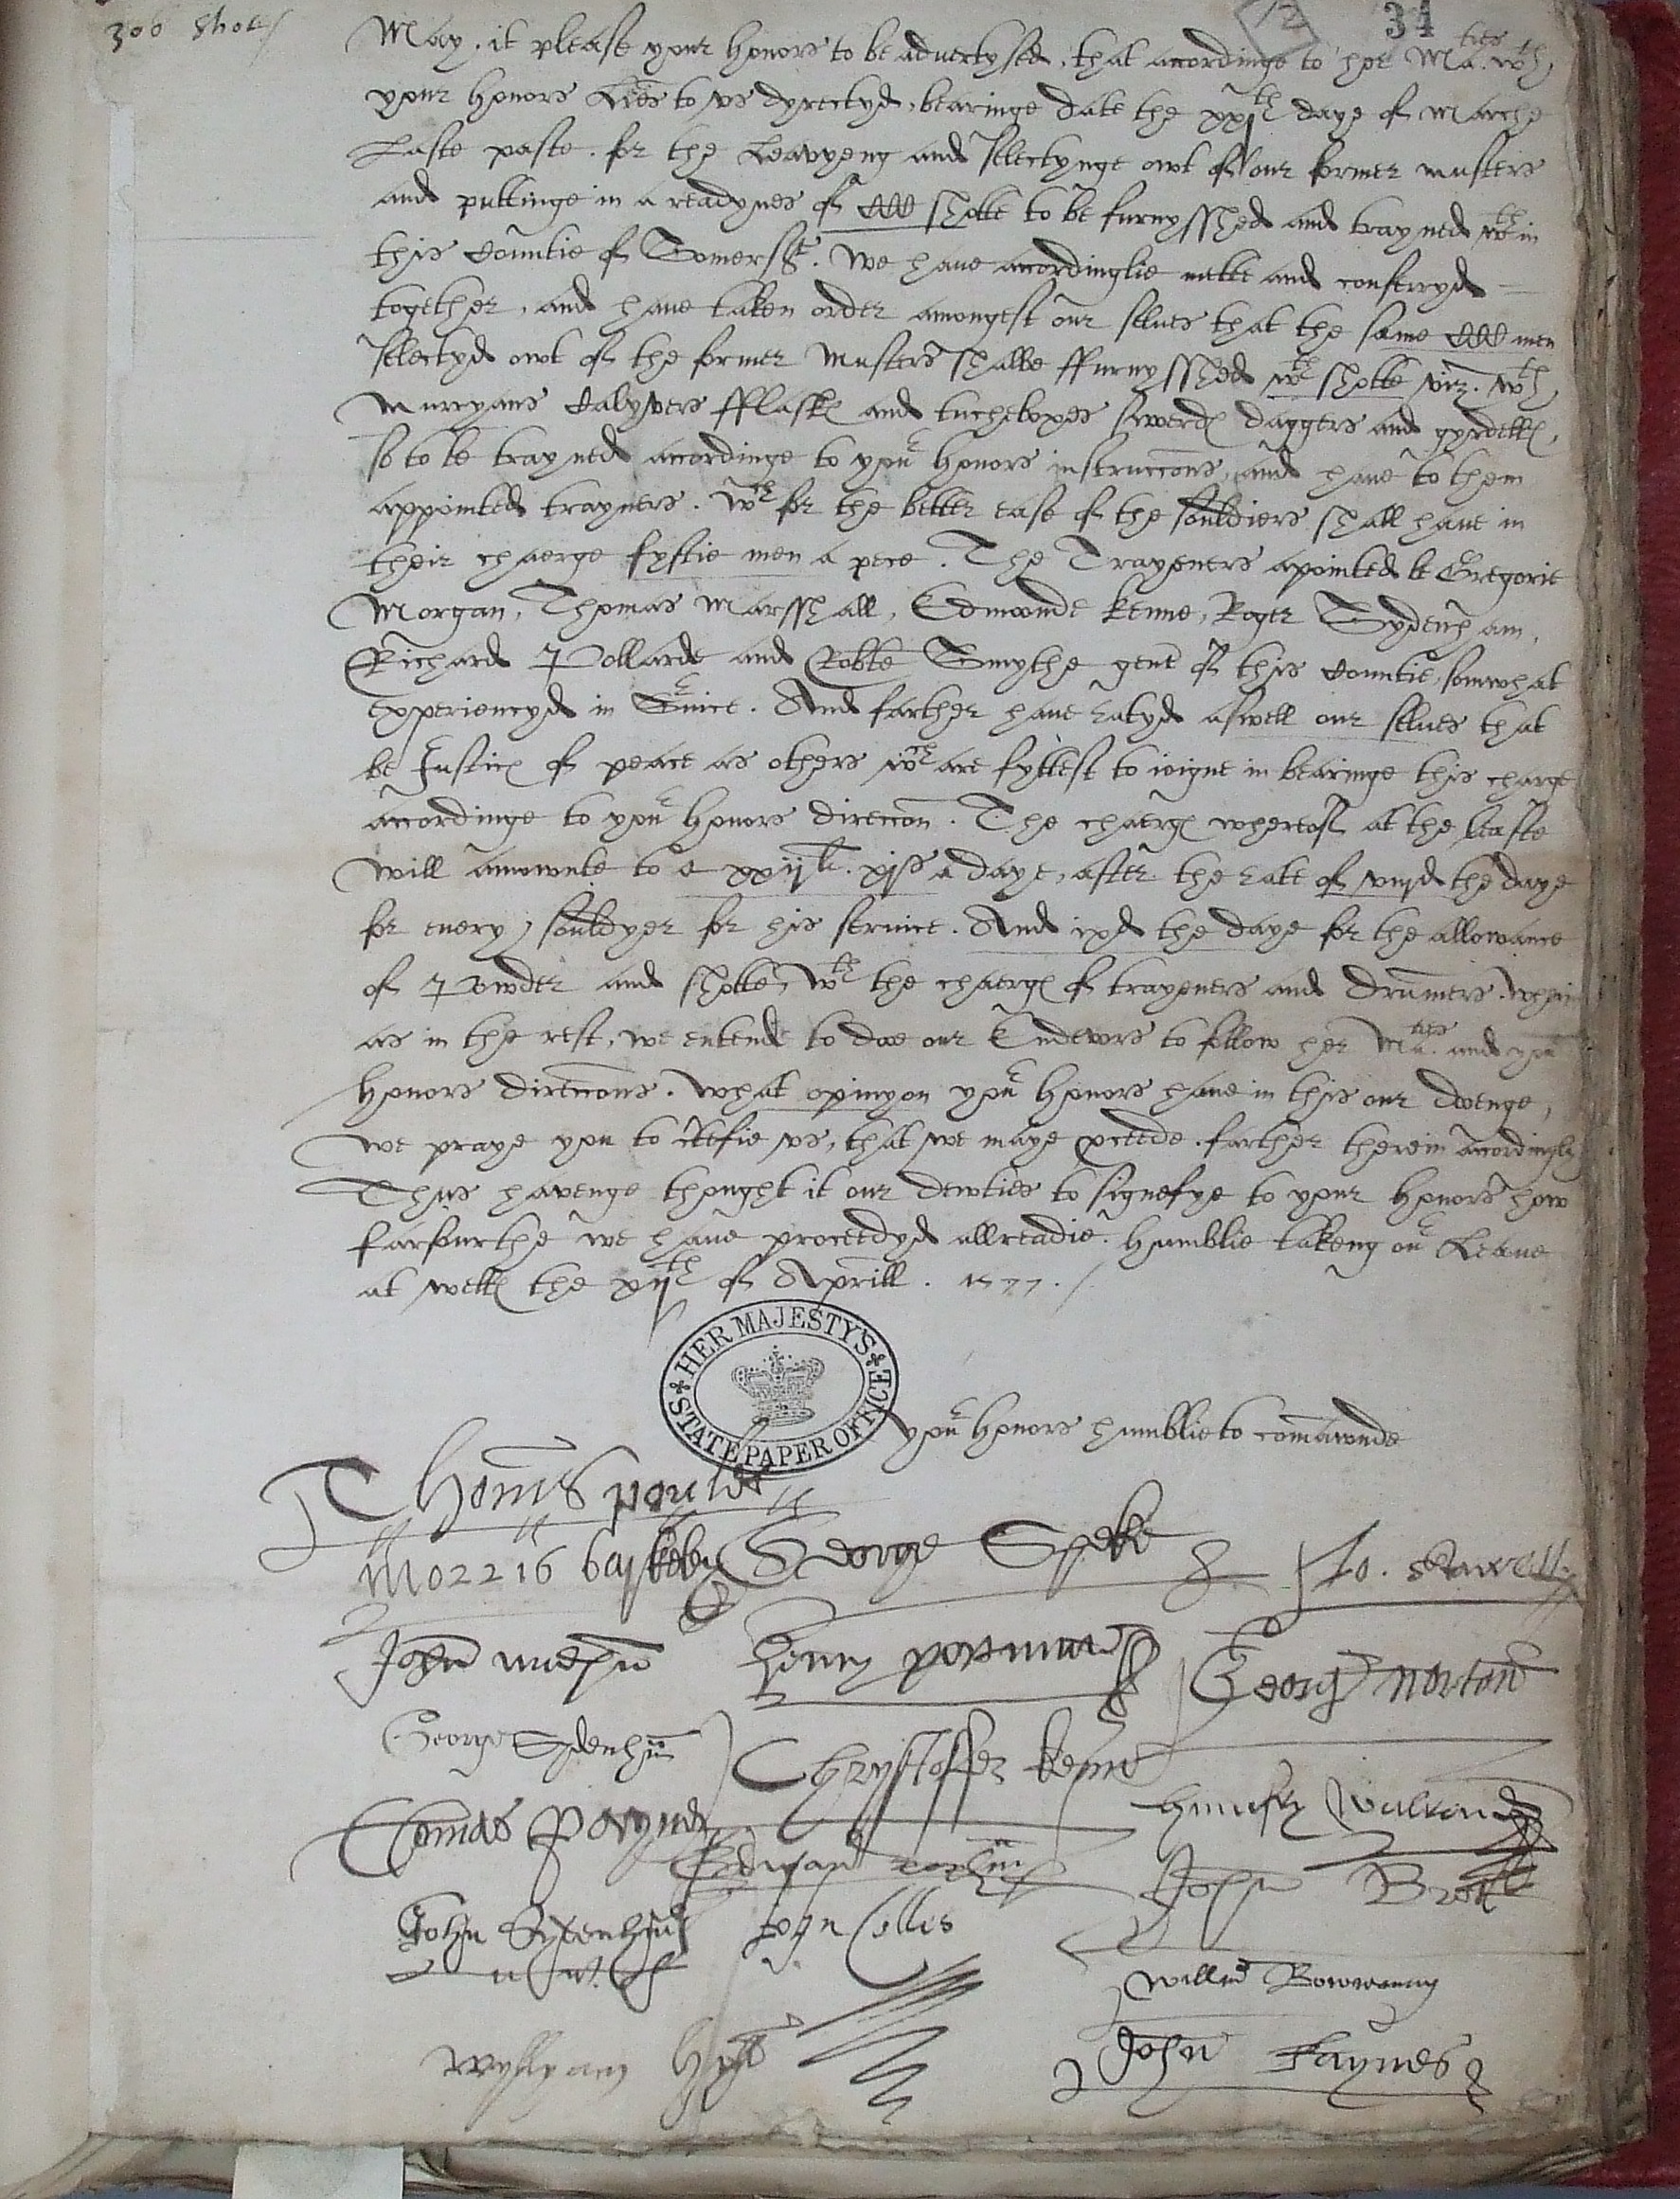 300 shott
12
34
May it please your honors to be advertysed, that accordinge to her Ma.ties wth
your honors Lres to vs dyrectyd, bearinge date the xxjth daye of Marche
Laste paste. for the Leavyeng and selectynge owt of our former musters
and puttinge in a readynes of CCC shotte to be furnysshed and trayned wthin
this Countie of Somerst. We haue accordinglie mette and conferryd
together, and haue taken order amongest our selues that the same CCC men
selectyd owt of the former Musters shalbe ffurnysshed wth shotte viz. wth
Murryans Calyvers fflaskes and tucheboxes swerdes daggers and gyrdells,
so to be trayned accordinge to your honors instruccons, and haue to them
appointed trayners. wch for the better ease of the souldiers shall haue in
their chaerge fystie men a pece. The Trayeners apointed be Gregorie
Morgan, Thomas Marsshall, Edmonde kenne, Roger Sydenham,
Richard Pollarde and Robte Smythe gent of this Countie, somwhat
experiencyd in Svice. And farther haue ratyd aswell our selues that
be Justices of peace as others wch are fyttest to ioigne in bearinge this charge
accordinge to your honors direccon. The chaerges whereof at the leaste
will amownte to a xxijli. xjs a daye, after the rate of viijd the daye
for euery souldyer for his seruice. And ixd the daye for the allowance
of Powder and shotte, wth the chaerges of trayeners and drumers. wherin
as in the rest, we entende to doe our Endevors to follow her Ma.ties and your
honors direccons. What opinyon your honors haue in this our doenge,
we praye you to ctefie vs, that we maye pceede farther therein accordingly
Thus havenge thought it our dewties to signefye to your honors how
farfourthe we haue proceedyd allreadie. humblie takeng our Leaue
at wells the xijth of Aprill. 1577.
HER MAJESTY'S
STATE PAPER OFFICE
your honors humblie to comawnde
Thoms poulet
George Speke
Jo. Stawell
John
henry portman
George norton
George Sydenham
Chrystoffer kenne
humfry Walrond
Thomas
Edward
John Sydenham
John Collis
John Brett
William
Wyllyam Hyll
John